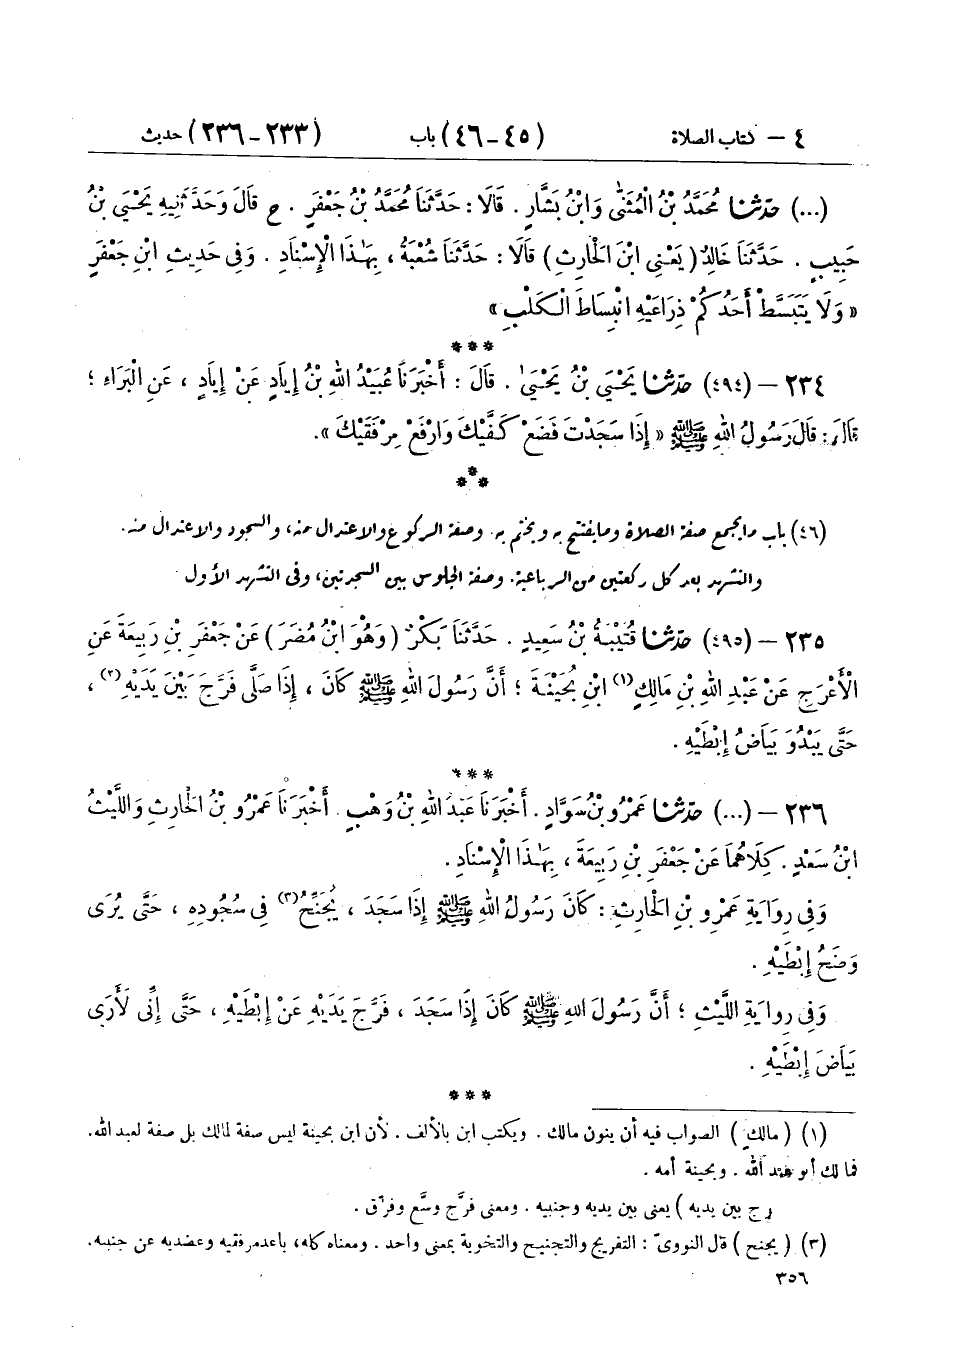 ٤ – كتاب الصلاة (٤٥-٤٦) باب (٢٣٣-٢٣٦) حديث
(...) حَدَّثَنَا مُحَمَّدُ بْنُ الْمُثَنَّى وَابْنُ بَشَّارٍ . قَالَا : حَدَّثَنَا مُحَمَّدُ بْنُ جَعْفَرٍ . ح قَالَ وَحَدَّثَنِيهِ يَحْيَى بْنُ
حَبِيبٍ . حَدَّثَنَا خَالِدٌ ( يَعْنِي ابْنَ الْحَارِثِ ) قَالَا : حَدَّثَنَا شُعْبَةُ ، بِهَذَا الْإِسْنَادِ . وَفِي حَدِيثِ ابْنِ جَعْفَرٍ
« وَلَا يَتَبَسَّطْ أَحَدُكُمْ ذِرَاعَيْهِ انْبِسَاطَ الْكَلْبِ »
***
٢٣٤ – (٤٩٤) حَدَّثَنَا يَحْيَى بْنُ يَحْيَى . قَالَ : أَخْبَرَنَا عُبَيْدُ اللهِ بْنُ إِيَادٍ عَنْ إِيَادٍ ، عَنِ الْبَرَاءِ ؛
قَالَ : قَالَ رَسُولُ اللهِ ﷺ « إِذَا سَجَدْتَ فَضَعْ كَفَّيْكَ وَارْفَعْ مِرْفَقَيْكَ » .
***
(٤٦) باب ما يجمع صفة الصلاة وما يفتتح به ويختم به. وصفة الركوع والاعتدال منه، والسجود والاعتدال منه.
والتشهد بعد كل ركعتين من الرباعية. وصفة الجلوس بين السجدتين، وفي التشهد الأول
٢٣٥ – (٤٩٥) حَدَّثَنَا قُتَيْبَةُ بْنُ سَعِيدٍ . حَدَّثَنَا بَكْرٌ ( وَهُوَ ابْنُ مُضَرَ ) عَنْ جَعْفَرِ بْنِ رَبِيعَةَ عَنِ
الْأَعْرَجِ عَنْ عَبْدِ اللهِ بْنِ مَالِكٍ(١) ابْنِ بُحَيْنَةَ ؛ أَنَّ رَسُولَ اللهِ ﷺ كَانَ ، إِذَا صَلَّى فَرَّجَ بَيْنَ يَدَيْهِ(٢) ،
حَتَّى يَبْدُوَ بَيَاضُ إِبْطَيْهِ .
***
٢٣٦ – (...) حَدَّثَنَا عَمْرُو بْنُ سَوَّادٍ . أَخْبَرَنَا عَبْدُ اللهِ بْنُ وَهْبٍ . أَخْبَرَنَا عَمْرُو بْنُ الْحَارِثِ وَاللَّيْثُ
ابْنُ سَعْدٍ . كِلَاهُمَا عَنْ جَعْفَرِ بْنِ رَبِيعَةَ ، بِهَذَا الْإِسْنَادِ .
وَفِي رِوَايَةِ عَمْرِو بْنِ الْحَارِثِ : كَانَ رَسُولُ اللهِ ﷺ إِذَا سَجَدَ ، يُجَنِّحُ(٣) فِي سُجُودِهِ ، حَتَّى يُرَى
وَضَحُ إِبْطَيْهِ .
وَفِي رِوَايَةِ اللَّيْثِ ؛ أَنَّ رَسُولَ اللهِ ﷺ كَانَ إِذَا سَجَدَ ، فَرَّجَ يَدَيْهِ عَنْ إِبْطَيْهِ ، حَتَّى إِنِّي لَأَرَى
بَيَاضَ إِبْطَيْهِ .
***
(١) ( مالكٍ ) الصواب فيه أن ينون مالك . ويكتب ابن بالألف . لأن ابن بحينة ليس صفة لمالك بل صفة لعبد الله.
فمالك أبو عبد الله . وبحينة أمه .
رج بين يديه ) يعنى بين يديه وجنبيه . ومعنى فرَّج وسَّع وفرّق .
(٣) ( يجنح ) قال النووىّ : التفريج والتجنيح والتخوية بمعنى واحد . ومعناه كله، باعد مرفقيه وعضديه عن جنبيه.
٣٥٦